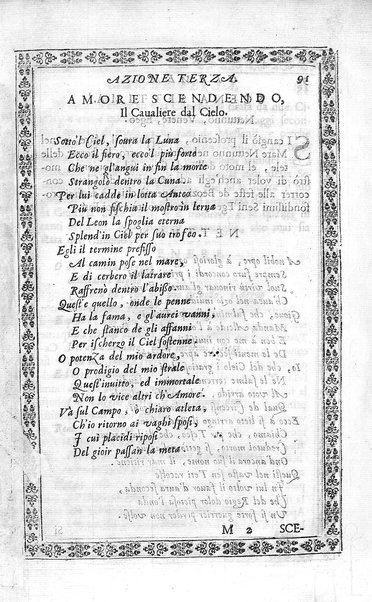 AZIONE TERZA. 91
AMORE SCENDENDO,
Il Caualiere dal Cielo.
Sotto'l Ciel, soura la Luna
Ecco il fiero, ecco'l più forte
Che ne gl'angui in fin la morte
Strangolò dentro la Cuna.
Per lui cadde in lotta Anteo
Più non fischia il mostro in lerna
Del Leon la spoglia eterna
Splend'in Ciel per suo trofeo.
Egli il termine prefisso
Al camin pose nel mare,
E di cerbero il latrare
Raffrenò dentro l'abisso.
Quest'e quello, onde le penne
Ha la fama, e gl'aurei vanni,
E che stanco de gli affanni
Per ischerzo il Ciel sostenne
O potenza del mio ardore,
O prodigio del mio strale
Quest'inuitto, ed immortale
Non lo vice altri ch'Amore.
Và sul Campo, ò chiaro atleta,
Ch'io ritorno ai vaghi sposi,
I cui placidi riposi
Del gioir passan la meta.
M 2 SCE-